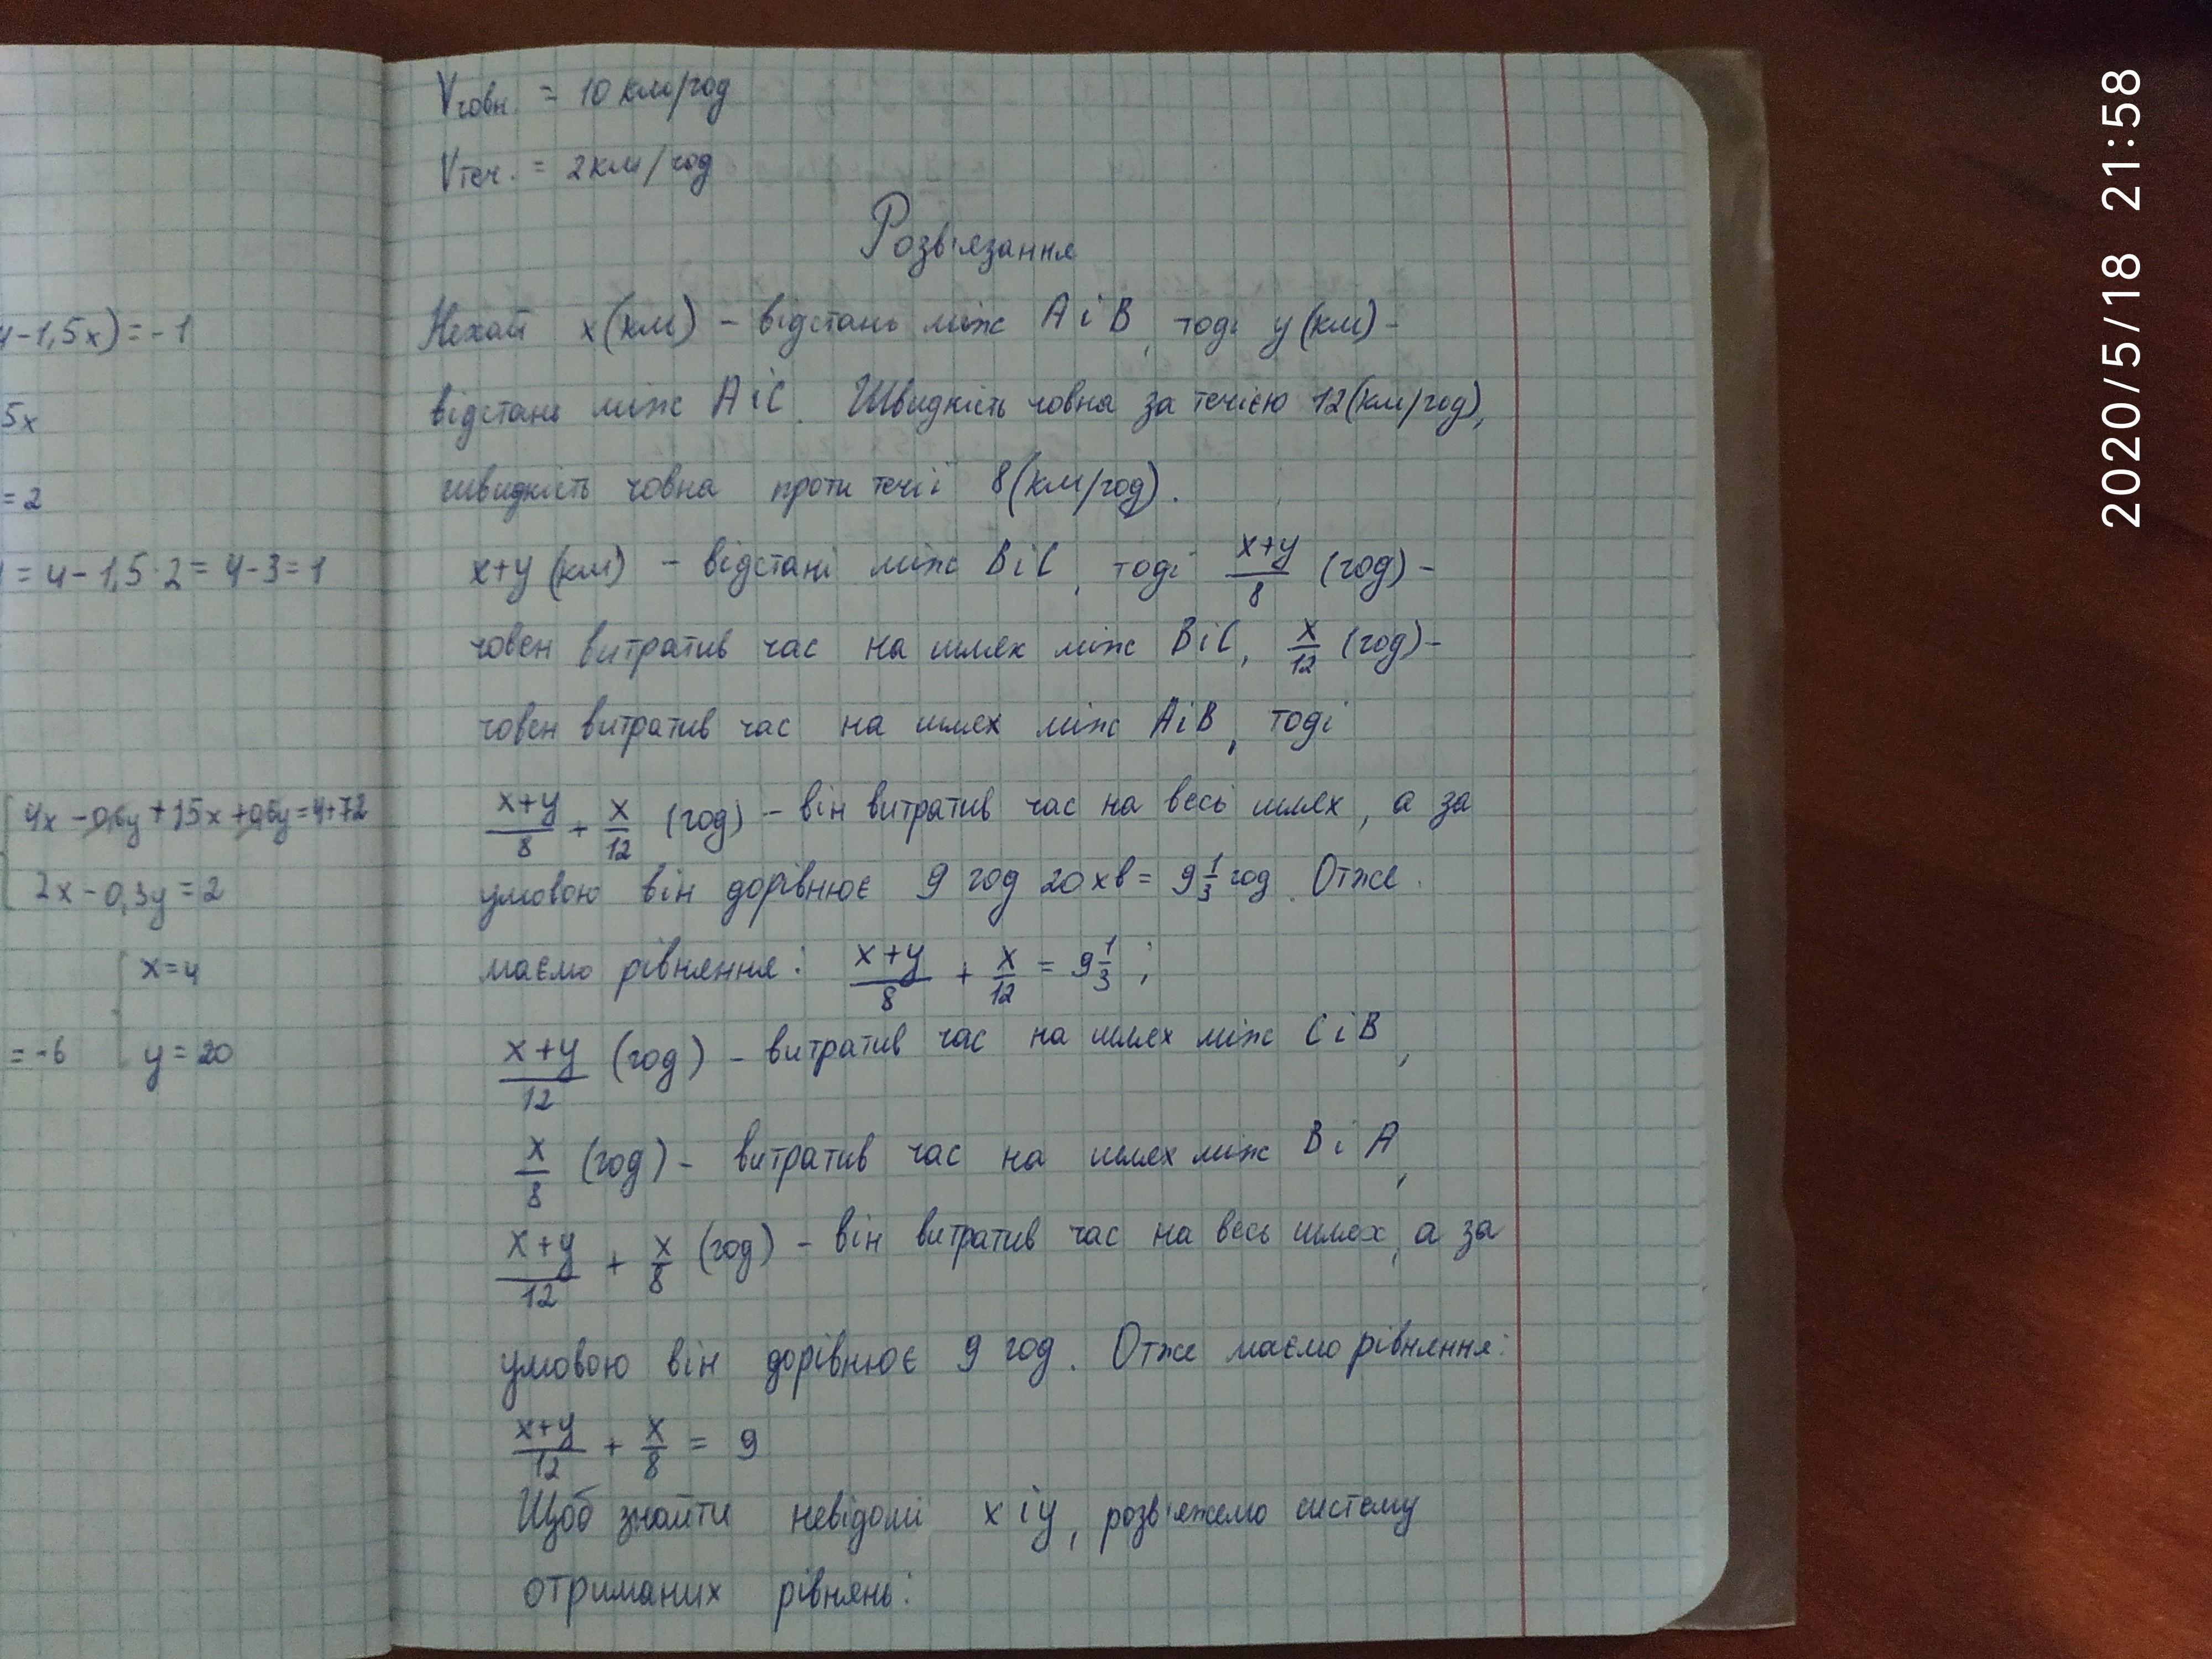 4-1,5x)=-1
5x
=2
= 4-1,5·2= 4-3=1
4x-0,6y+15x+0,6y=4+72
2x-0,3y=2
x=4
=-6 y=20
Vчовн. = 10 км/год
Vтеч. = 2 км/год
Розв'язання
Нехай x(км) - відстань між A і B, тоді y(км) -
відстань між A і C. Швидкість човна за течією 12(км/год),
швидкість човна проти течії 8(км/год).
x+y (км) - відстані між B і C, тоді (x+y)/8 (год) -
човен витратив час на шлях між B і C, x/12 (год) -
човен витратив час на шлях між A і B, тоді
(x+y)/8 + x/12 (год) - він витратив час на весь шлях, а за
умовою він дорівнює 9 год 20 хв = 9 1/3 год. Отже
маємо рівняння: (x+y)/8 + x/12 = 9 1/3 ;
(x+y)/12 (год) - витратив час на шлях між C і B,
x/8 (год) - витратив час на шлях між B і A,
(x+y)/12 + x/8 (год) - він витратив час на весь шлях, а за
умовою він дорівнює 9 год. Отже маємо рівняння:
(x+y)/12 + x/8 = 9
Щоб знайти невідомі x і y, розв'яжемо систему
отриманих рівнянь:
2020/5/18 21:58